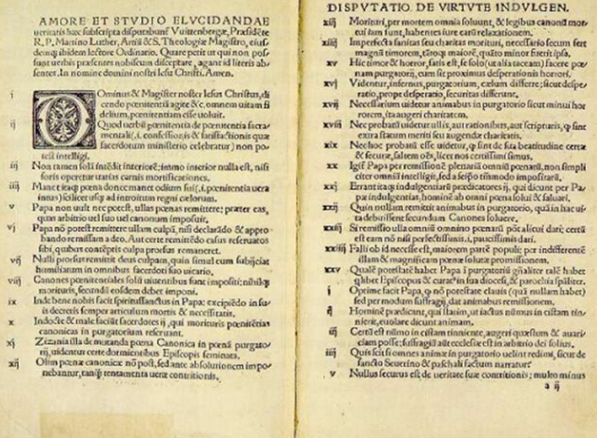 AMORE ET STVDIO ELVCIDANDAE
ueritatis hæc subscripta disputabunt Vuittenbergæ, Præsidēte
R. P. Martino Luther, Artiū & S. Theologiæ Magistro, eius-
dem ibidem lectore Ordinario. Quare petit ut qui non pos-
sunt uerbis præsentes nobiscum disceptare, agant id literis ab-
sentes. In nomine domini nostri Iesu Christi. Amen.
i Ominus & Magister noster Iesus Christus, di-
cendo pœnitentiā agite &c. omnem uitam fi-
delium, pœnitentiam esse uoluit.
ij Quod uerbū pœnitentiæ de pœnitentia sacra-
mentali, (.i. confessionis & satisfactionis quæ
sacerdotum ministerio celebratur) non po-
test intelligi.
iij Non tamen solā intēdit interiorē: immo interior nulla est, nisi
foris operetur uarias carnis mortificationes.
iiij Manet itaq; pœna donec manet odium sui, (.i. pœnitentia uera
intus) scilicet usq; ad introitum regni cælorum.
v Papa non uult nec potest, ullas pœnas remittere: præter eas,
quas arbitrio uel suo uel canonum imposuit.
vj Papa nō potest remittere ullam culpā, nisi declarādo & appro-
bando remissam a deo. Aut certe remittēdo casus reseruatos
sibi, quibus contēptis culpa prorsus remaneret.
vij Nulli prorsus remittit deus culpam, quin simul eum subijciat
humiliatum in omnibus sacerdoti suo uicario.
viij Canones pœnitentiales solū uiuentibus sunt impositi: nihilq;
morituris, secundū eosdem debet imponi.
ix Inde bene nobis facit spiritussanctus in Papa: excipiēdo in su-
is decretis semper articulum mortis & necessitatis.
x Indocte & male faciūt sacerdotes ij, qui morituris pœnitētias
canonicas in purgatorium reseruant.
xj Zizania illa de mutanda pœna Canonica in pœnā purgato-
rij, uidentur certe dormientibus Episcopis seminata.
xij Olim pœnæ canonicæ nō post, sed ante absolutionem impo-
nebantur, tanq̄ tentamenta ueræ contritionis.
DISPVTATIO DE VIRTVTE INDVLGEN.
xiij Morituri, per mortem omnia soluunt, & legibus canonū mor-
tui iam sunt, habentes iure earū relaxationem.
xiiij Imperfecta sanitas seu charitas morituri, necessario secum fert
magnū timorem, tātoq; maiorē, quāto minor fuerit ipsa.
xv Hic timor & horror, satis est, se solo (ut alia taceam) facere pœ-
nam purgatorij, cum sit proximus desperationis horrori.
xvj Videntur, infernus, purgatorium, cælum differre: sicut despe-
ratio, prope desperatio, securitas differunt.
xvij Necessarium uidetur animabus in purgatorio sicut minui hor-
rorem, ita augeri charitatem.
xviij Nec probatū uidetur ullis, aut rationibus, aut scripturis, q̄ sint
extra statum meriti seu augendæ charitatis.
xix Nec hoc probatū esse uidetur, q̄ sint de sua beatitudine certæ
& securæ, saltem oēs, licet nos certissimi simus.
xx Igitur Papa per remissionem plenariā omniū pœnarū, non simpli-
citer omniū intelligit, sed a seipso tm̄modo impositarū.
xxj Errant itaq; indulgentiarū prædicatores ij, qui dicunt per Pa-
pæ indulgentias, hominē ab omni pœna solui & saluari.
xxij Quin nullam remittit animabus in purgatorio, quā in hac ui-
ta debuissent secundum Canones soluere.
xxiij Si remissio ulla omniū omnino pœnarū pōt alicui dari; certū
est eam nō nisi perfectissimis, .i. paucissimis dari.
xxiiij Falli ob id necesse est, maiorem partē populi: per indifferentē
illam & magnificam pœnæ solutæ promissionem.
xxv Qualē potestatē habet Papa ī purgatoriū gn̄aliter talē habet
quilibet Episcopus & curatus in sua diocesi, & parochia sp̄aliter.
i Optime facit Papa, q̄ nō potestate clauis (quā nullam habet)
sed per modum suffragij, dat animabus remissionem.
ij Hominē prædicant, qui statim, ut iactus nūmus in cistam tin-
nierit, euolare dicunt animam.
iij Certū est nūmo in cistam tinniente, augeri quæstum & auari-
ciam posse: suffragiū aūt ecclesiæ est in arbitrio dei solius.
iiij Quis scit si omnes animæ in purgatorio uelint redimi, sicut de
sancto Seuerino & paschali factum narratur.
v Nullus securus est de ueritate suæ contritionis; multo minus
a ij